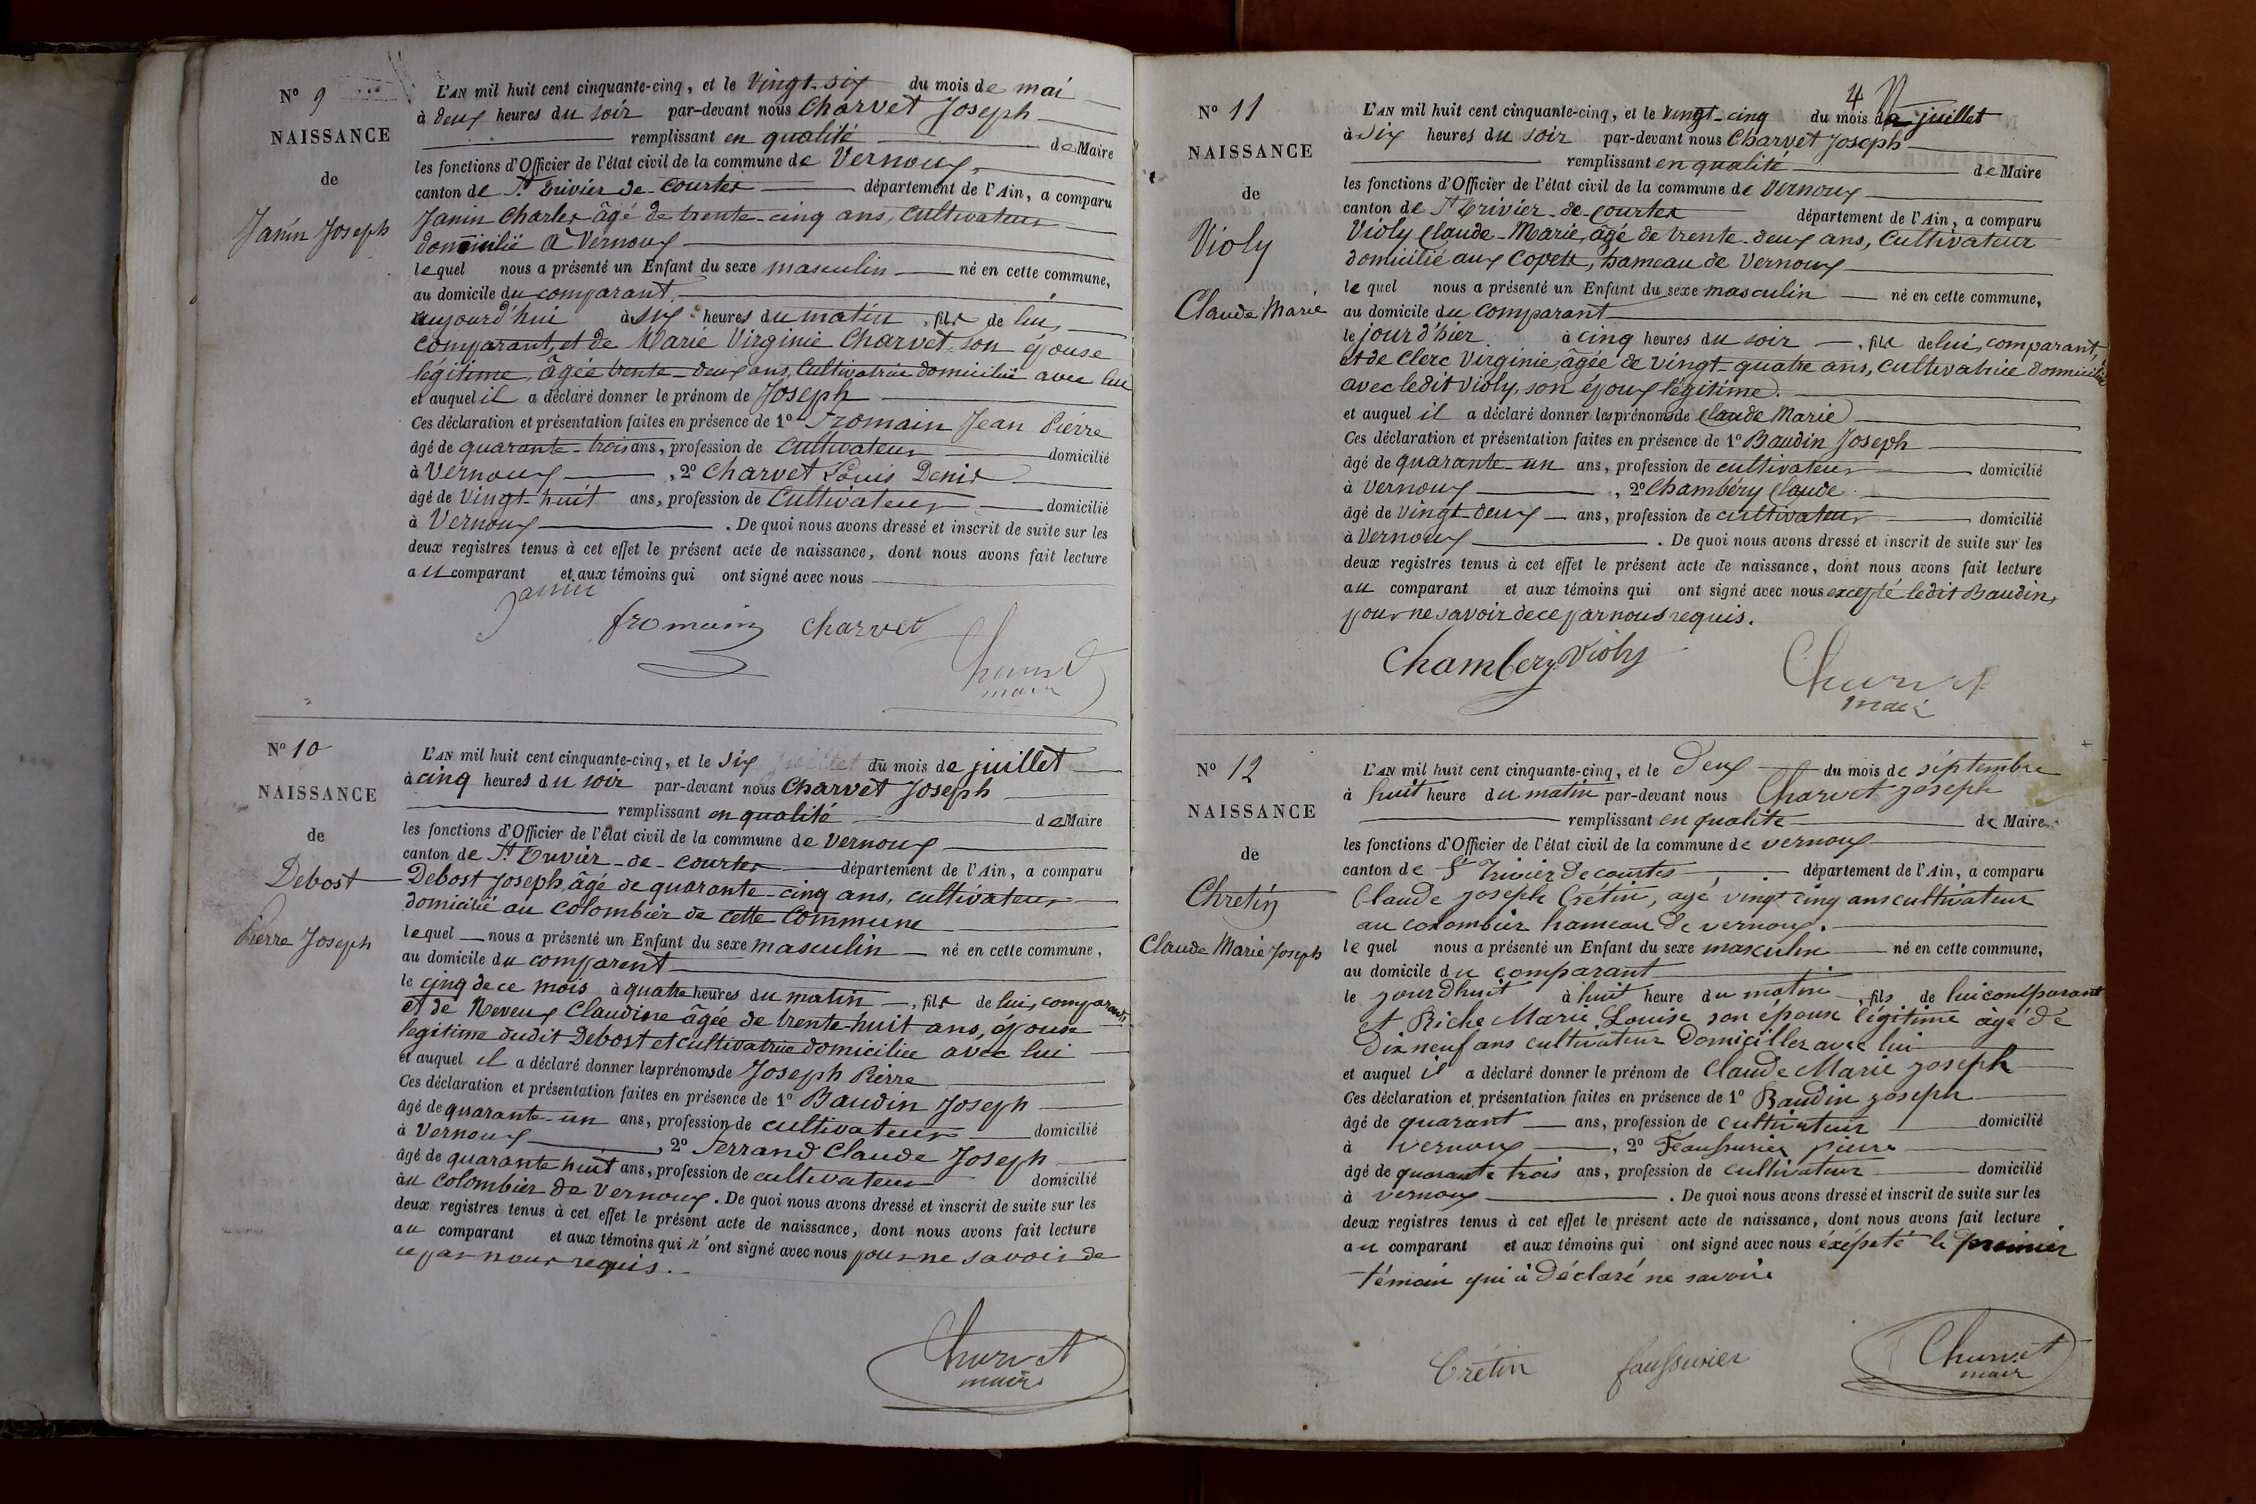 N° 9
NAISSANCE
de
Janin Joseph
L'AN mil huit cent cinquante-cinq, et le vingt-six du mois de mai
à deux heures du soir par-devant nous Charvet Joseph
remplissant en qualité de Maire
les fonctions d'Officier de l'état civil de la commune de Vernoux,
canton de St Trivier-de-Courtes département de l'Ain, a comparu
Janin Charles âgé de trente-cinq ans, cultivateur
domicilié à Vernoux
lequel nous a présenté un Enfant du sexe masculin né en cette commune,
au domicile du comparant,
aujourd'hui à six heures du matin, fils de lui,
comparant, et de Marie Virginie Charvet, son épouse
légitime, âgée trente-deux ans, cultivatrice domiciliée avec lui
et auquel il a déclaré donner le prénom de Joseph
Ces déclaration et présentation faites en présence de 1° Fromain Jean Pierre
âgé de quarante-trois ans, profession de cultivateur domicilié
à Vernoux, 2° Charvet Louis Denis
âgé de vingt-huit ans, profession de cultivateur domicilié
à Vernoux. De quoi nous avons dressé et inscrit de suite sur les
deux registres tenus à cet effet le présent acte de naissance, dont nous avons fait lecture
au comparant et aux témoins qui ont signé avec nous
Janin
fromain charvet
Charvet
maire
N° 10
NAISSANCE
de
Debost
Pierre Joseph
L'AN mil huit cent cinquante-cinq, et le six juillet du mois de juillet
à cinq heures du soir par-devant nous Charvet Joseph
remplissant en qualité de Maire
les fonctions d'Officier de l'état civil de la commune de Vernoux
canton de St Trivier-de-Courtes département de l'Ain, a comparu
Debost Joseph, âgé de quarante-cinq ans, cultivateur
domicilié au Colombier de cette Commune
lequel nous a présenté un Enfant du sexe masculin né en cette commune,
au domicile du comparent
le cinq de ce mois à quatre heures du matin, fils de lui, comparant,
et de Neveux Claudine âgée de trente-huit ans, épouse
legitime dudit Debost et cultivatrice domiciliée avec lui
et auquel il a déclaré donner les prénoms de Joseph Pierre
Ces déclaration et présentation faites en présence de 1° Baudin Joseph
âgé de quarante-un ans, profession de cultivateur domicilié
à Vernoux, 2° Ferrand Claude Joseph
âgé de quarante huit ans, profession de cultivateur domicilié
au colombier de Vernoux. De quoi nous avons dressé et inscrit de suite sur les
deux registres tenus à cet effet le présent acte de naissance, dont nous avons fait lecture
au comparant et aux témoins qui n'ont signé avec nous pour ne savoir de
ce par nous requis.
Charvet
maire
4
N° 11
NAISSANCE
de
Violy
Claude Marie
L'AN mil huit cent cinquante-cinq, et le vingt-cinq du mois de juillet
à six heures du soir par-devant nous Charvet Joseph
remplissant en qualité de Maire
les fonctions d'Officier de l'état civil de la commune de Vernoux
canton de St Trivier-de-Courtes département de l'Ain, a comparu
Violy Claude-Marie, âgé de trente-deux ans, Cultivateur
domicilié aux Copets, hameau de Vernoux
lequel nous a présenté un Enfant du sexe masculin né en cette commune,
au domicile du comparant
le jour d'hier à cinq heures du soir, fils de lui, comparant,
et de Clerc Virginie, âgée de vingt-quatre ans, cultivatrice domiciliée
avec ledit Violy, son époux légitime.
et auquel il a déclaré donner les prénoms de Claude Marie
Ces déclaration et présentation faites en présence de 1° Baudin Joseph
âgé de quarante-un ans, profession de cultivateur domicilié
à Vernoux, 2° Chambéry Claude
âgé de vingt-deux ans, profession de cultivateur domicilié
à Vernoux. De quoi nous avons dressé et inscrit de suite sur les
deux registres tenus à cet effet le présent acte de naissance, dont nous avons fait lecture
au comparant et aux témoins qui ont signé avec nous excepté ledit Baudin,
pour ne savoir de ce par nous requis.
Chambery Violy
Charvet
maire
N° 12
NAISSANCE
de
Chretin
Claude Marie Joseph
L'AN mil huit cent cinquante-cinq, et le Deux du mois de séptembre
à huit heure du matin par-devant nous Charvet joseph
remplissant en qualite de Maire
les fonctions d'Officier de l'état civil de la commune de vernoux
canton de St Trivier de courtes département de l'Ain, a comparu
Claude joseph Crétin, agé vingt cinq ans cultivateur
au colombier hameau de vernoux.
lequel nous a présenté un Enfant du sexe masculin né en cette commune,
au domicile du comparant
le jourdhuit à huit heure du matin, fils de lui comparant
et Riche Marie Louise son épouse légitime âgé de
Dix neuf ans cultivateur Domiciller avec lui
et auquel il a déclaré donner le prénom de Claude Marie joseph
Ces déclaration et présentation faites en présence de 1° Baudin joseph
âgé de quarant ans, profession de cultivateur domicilié
à vernoux, 2° Faussurier pierre
âgé de quarante trois ans, profession de cultivateur domicilié
à vernoux. De quoi nous avons dressé et inscrit de suite sur les
deux registres tenus à cet effet le présent acte de naissance, dont nous avons fait lecture
au comparant et aux témoins qui ont signé avec nous éxépeté le premier
témoin qui à Déclaré ne savoire
Crétin faussurier Charvet
maire